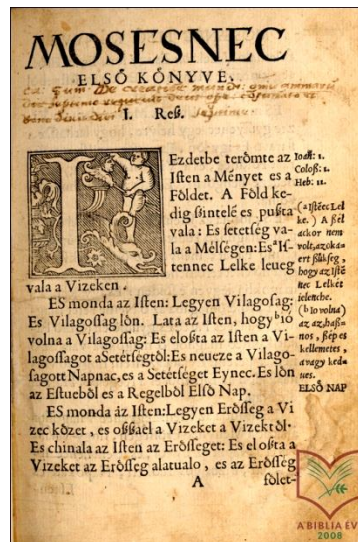 MOSESNEC
ELSŐ KŐNYVE.
I. Reſz.
KEzdetbe terőmte az
Iſten a Ményet es a
Főldet. A Főld ke-
dig ſzintelé es puſzta
vala: Es ſetetſég va-
la a Mélſégen: Es ª Iſ-
tennec Lelke leueg
vala a Vizeken.
ES monda az Iſten: Legyen Vilagoſag:
Es Vilagoſſag lőn. Lata az Iſten, hogy ᵇ ió
volna a Vilagoſſag: Es eloſzta az Iſten a Vi-
lagoſſagot a Setétſégtől: Es neueze a Vilago-
ſagott Napnac, es a Setétſéget Eynec. Es lőn
az Eſtueből es a Regelből Elſő Nap.
ES monda áz Iſten: Legyen Erőſſeg a Vi
zec kőzet, es oſzſzaèl a Vizeket a Vizektől.
Es chinala az Iſten az Erőſſeget: Es eloſzta a
Vizeket az Erőſſeg alatualo, es az Erőſſég
A főlet-
Ioañ: 1.
Coloſſ: 1.
Heb: 11.
(a Iſtēec Lel
ke.) A ſzél
ackor nem
volt, azoka
ert ſzükſeg,
hogy az Iſtē
nec Lelkét
ielenche.
(b io volna)
az az, haſz-
nos, ſzép es
kellemetes,
auagy ked-
ues.
ELSŐ NAP
A BIBLIA ÉVE
2008